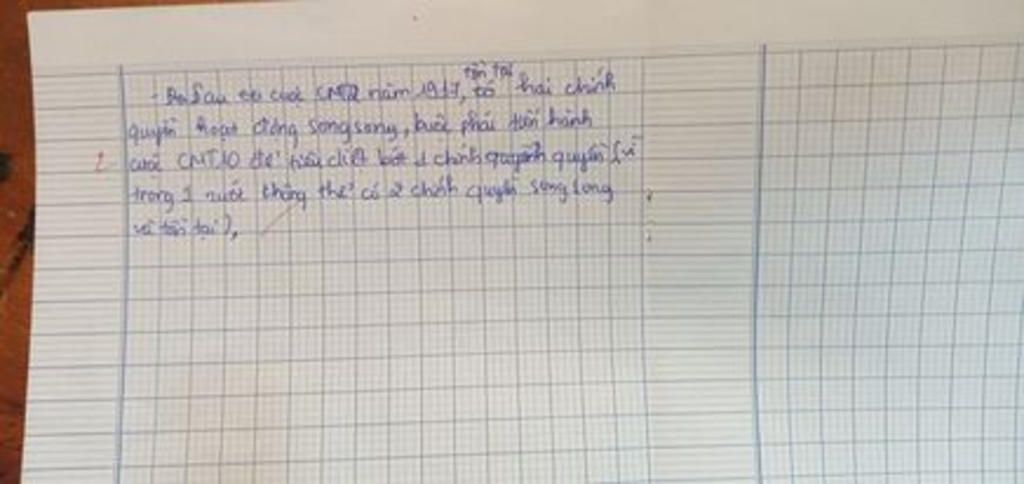 tồn tại
- Sau cuộc CMT2 năm 1917, có hai chính
quyền hoạt động song song, buộc phải tiến hành
cuộc CMT10 để tiêu diệt bớt 1 chính quyền (vì
trong 1 nước không thể có 2 chính quyền song song
và tồn tại),